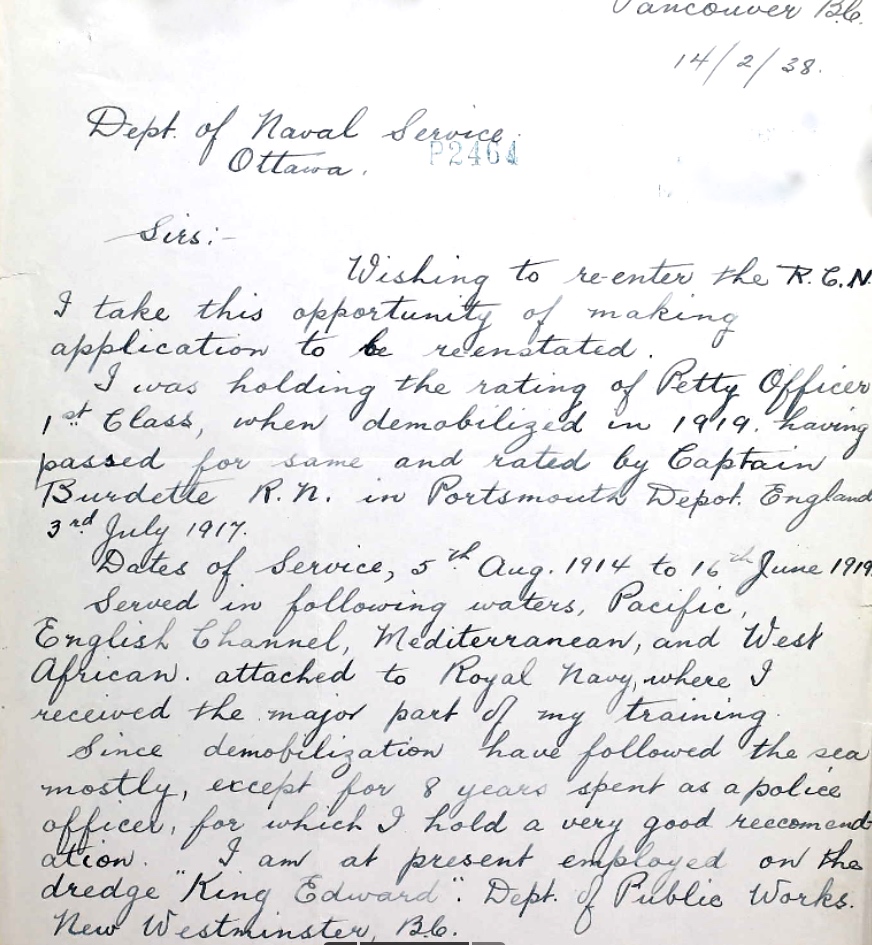 Vancouver B.C.
14/2/38.
Dept. of Naval Service
P2464
Ottawa.
Sirs:-
Wishing to re-enter the R.C.N.
I take this opportunity of making
application to be reenstated.
I was holding the rating of Petty Officer
1st Class, when demobilized in 1919. having
passed for same and rated by Captain
Burdette R.N. in Portsmouth Depot. England
3rd July 1917.
Dates of Service, 5th Aug. 1914 to 16th June 1919
Served in following waters, Pacific,
English Channel, Mediterranean, and West
African. attached to Royal Navy, where I
received the major part of my training.
Since demobilization have followed the sea
mostly, except for 8 years spent as a police
officer, for which I hold a very good reecomend-
ation. I am at present employed on the
dredge "King Edward". Dept. of Public Works.
New Westminster, B.C.